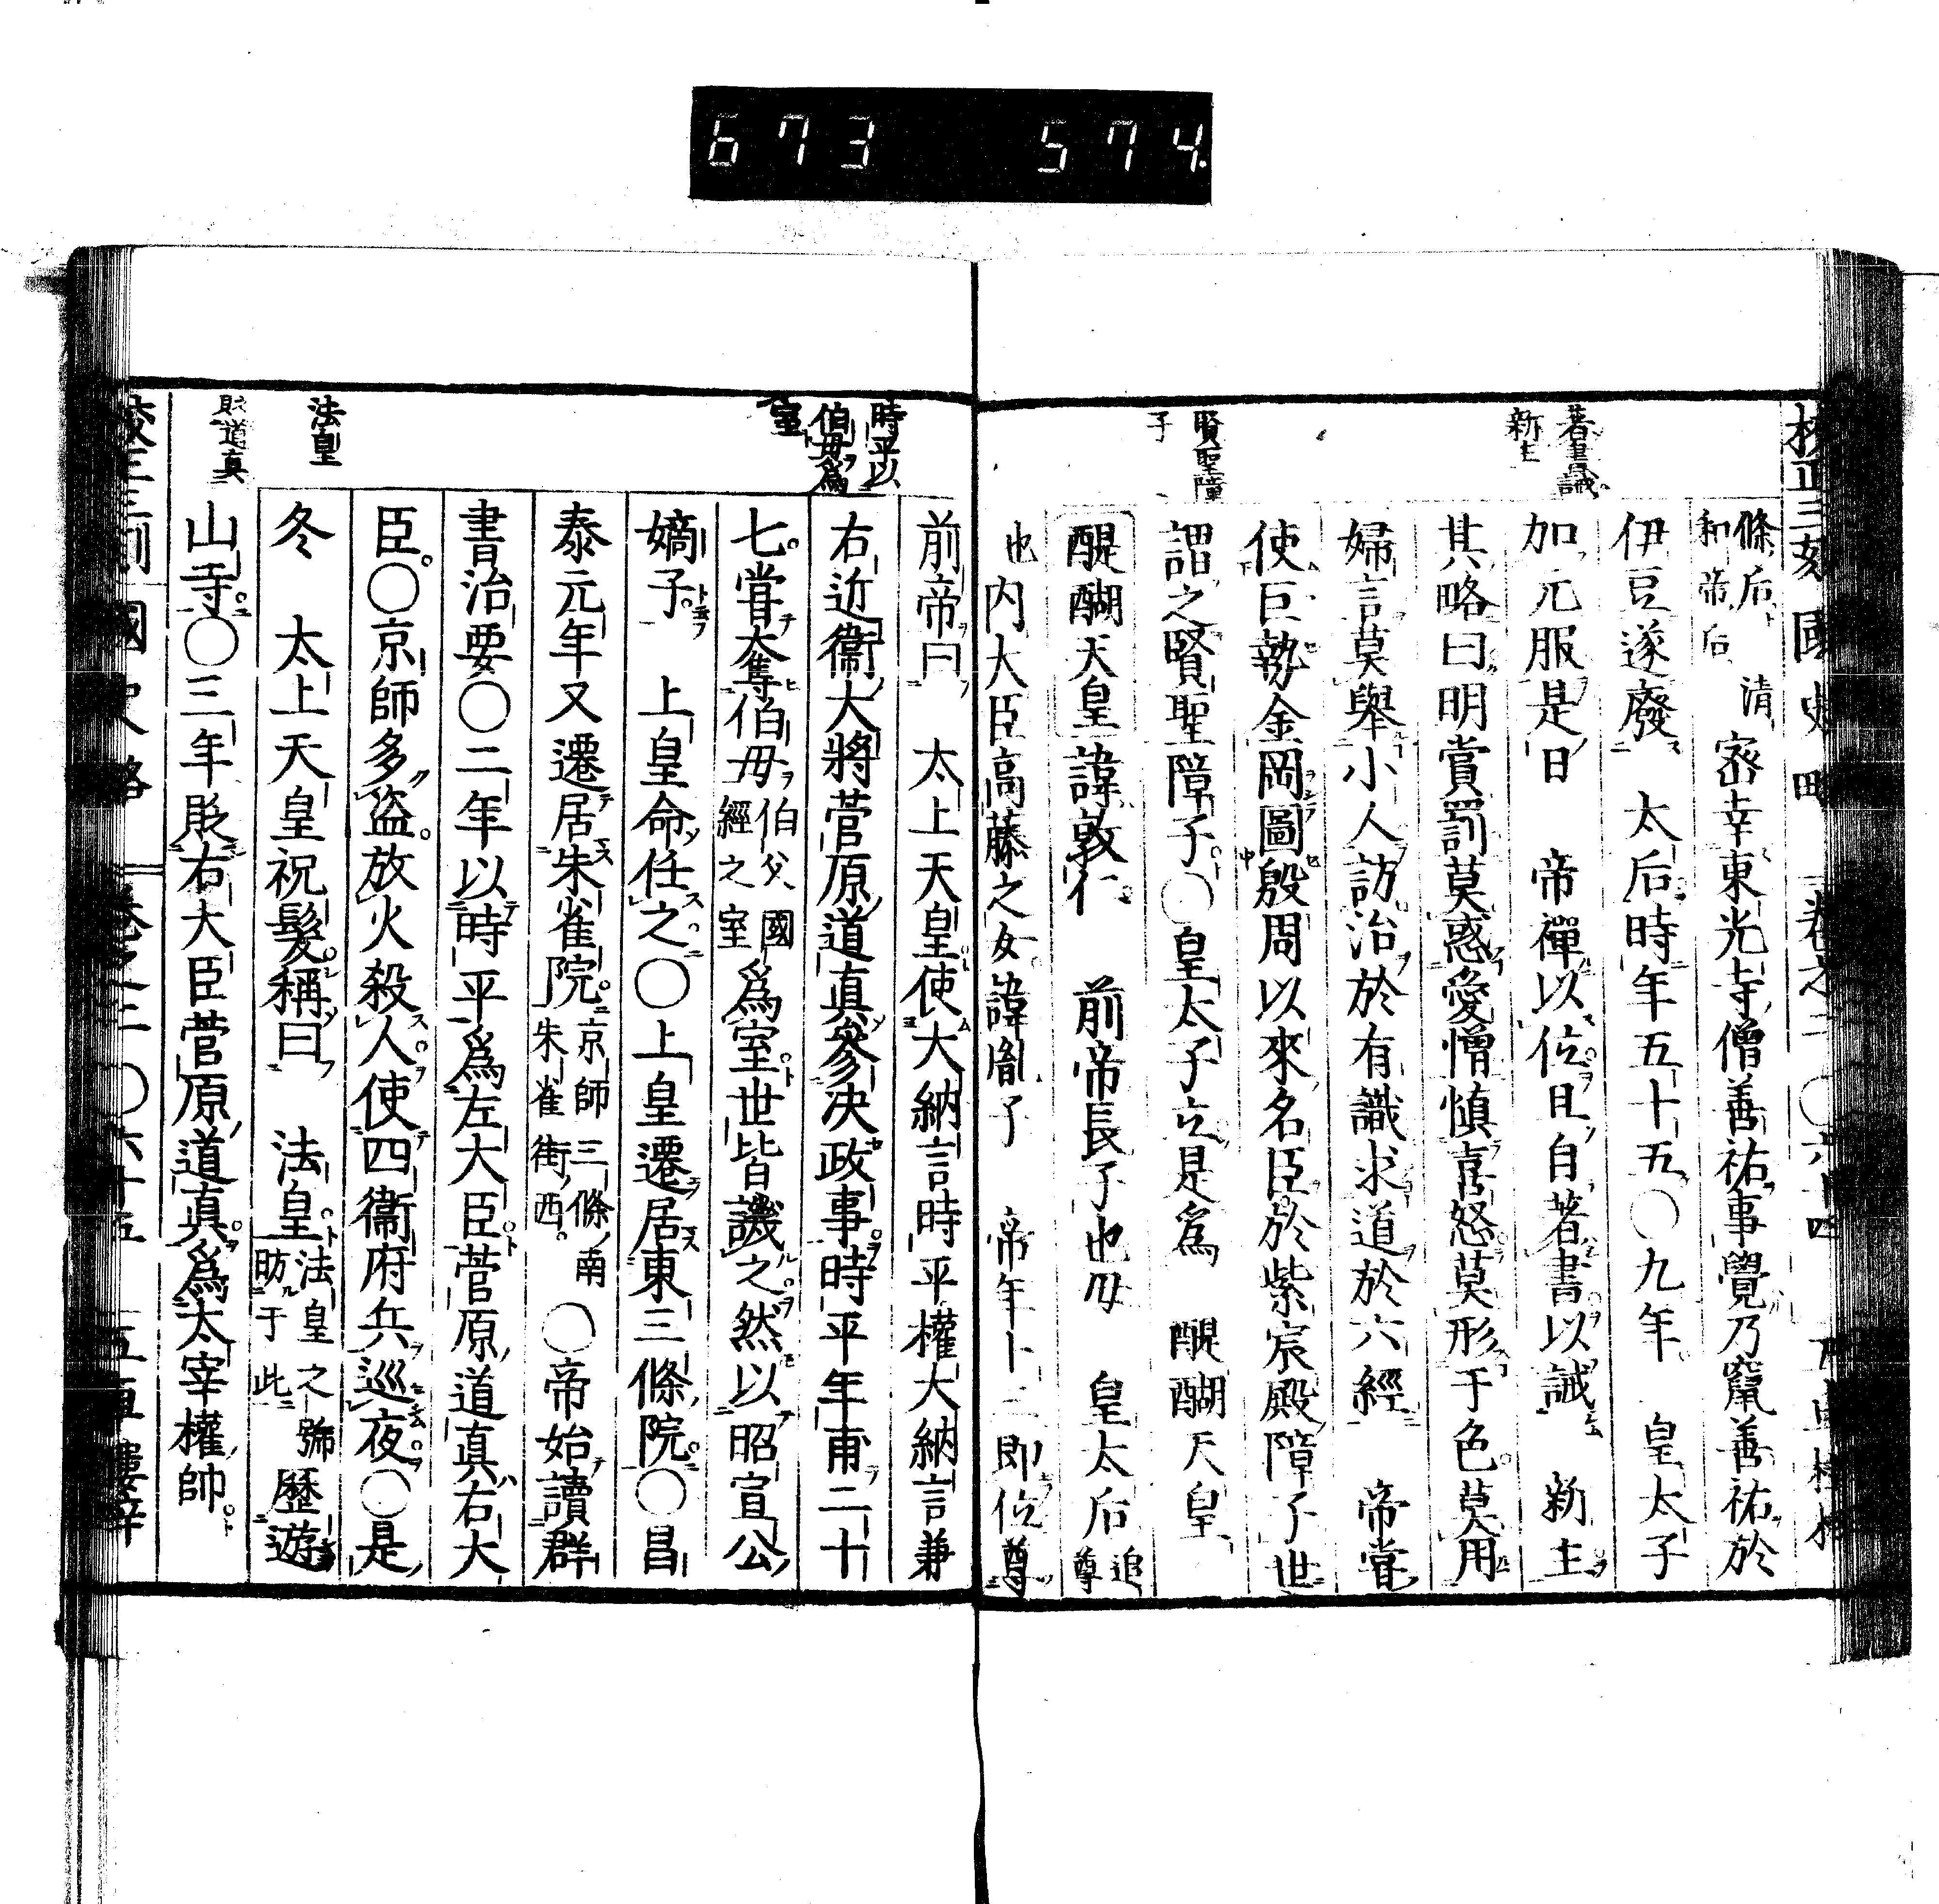 673 574
校正三刻國史略 卷之二〇六十四
著書誡
新主
賢聖障
子
條后 清
和帝后
密幸東光寺僧善祐事覺乃竄善祐於
伊豆遂廢 太后時年五十五〇九年 皇太子
加元服是日 帝禪以位且自著書以誡 新主
其略曰明賞罰莫惑愛憎慎喜怒莫形于色莫用
婦言莫舉小人訪治於有識求道於六經 帝嘗
使巨勢金岡圖殷周以來名臣於紫宸殿障子世
謂之賢聖障子〇皇太子立是爲 醍醐天皇
醍醐天皇諱敦仁 前帝長子也母 皇太后追尊
也内大臣高藤之女諱胤子 帝年十二即位尊
時平以
伯母爲
室
法皇
貶道真
前帝曰 太上天皇使大納言時平權大納言兼
右近衞大將菅原道真參決政事時平年甫二十
七嘗奪伯母伯父國經之室爲室世皆譏之然以昭宣公
嫡子 上皇命任之〇上皇遷居東三條院〇昌
泰元年又遷居朱雀院京師三條南朱雀街西〇帝始讀群
書治要〇二年以時平爲左大臣菅原道真右大
臣〇京師多盜放火殺人使四衞府兵巡夜〇是
冬 太上天皇祝髮稱曰 法皇法皇之號昉于此歷遊
山寺〇三年貶右大臣菅原道真爲太宰權帥
校正三刻國史略 卷之二〇六十五 五車樓梓